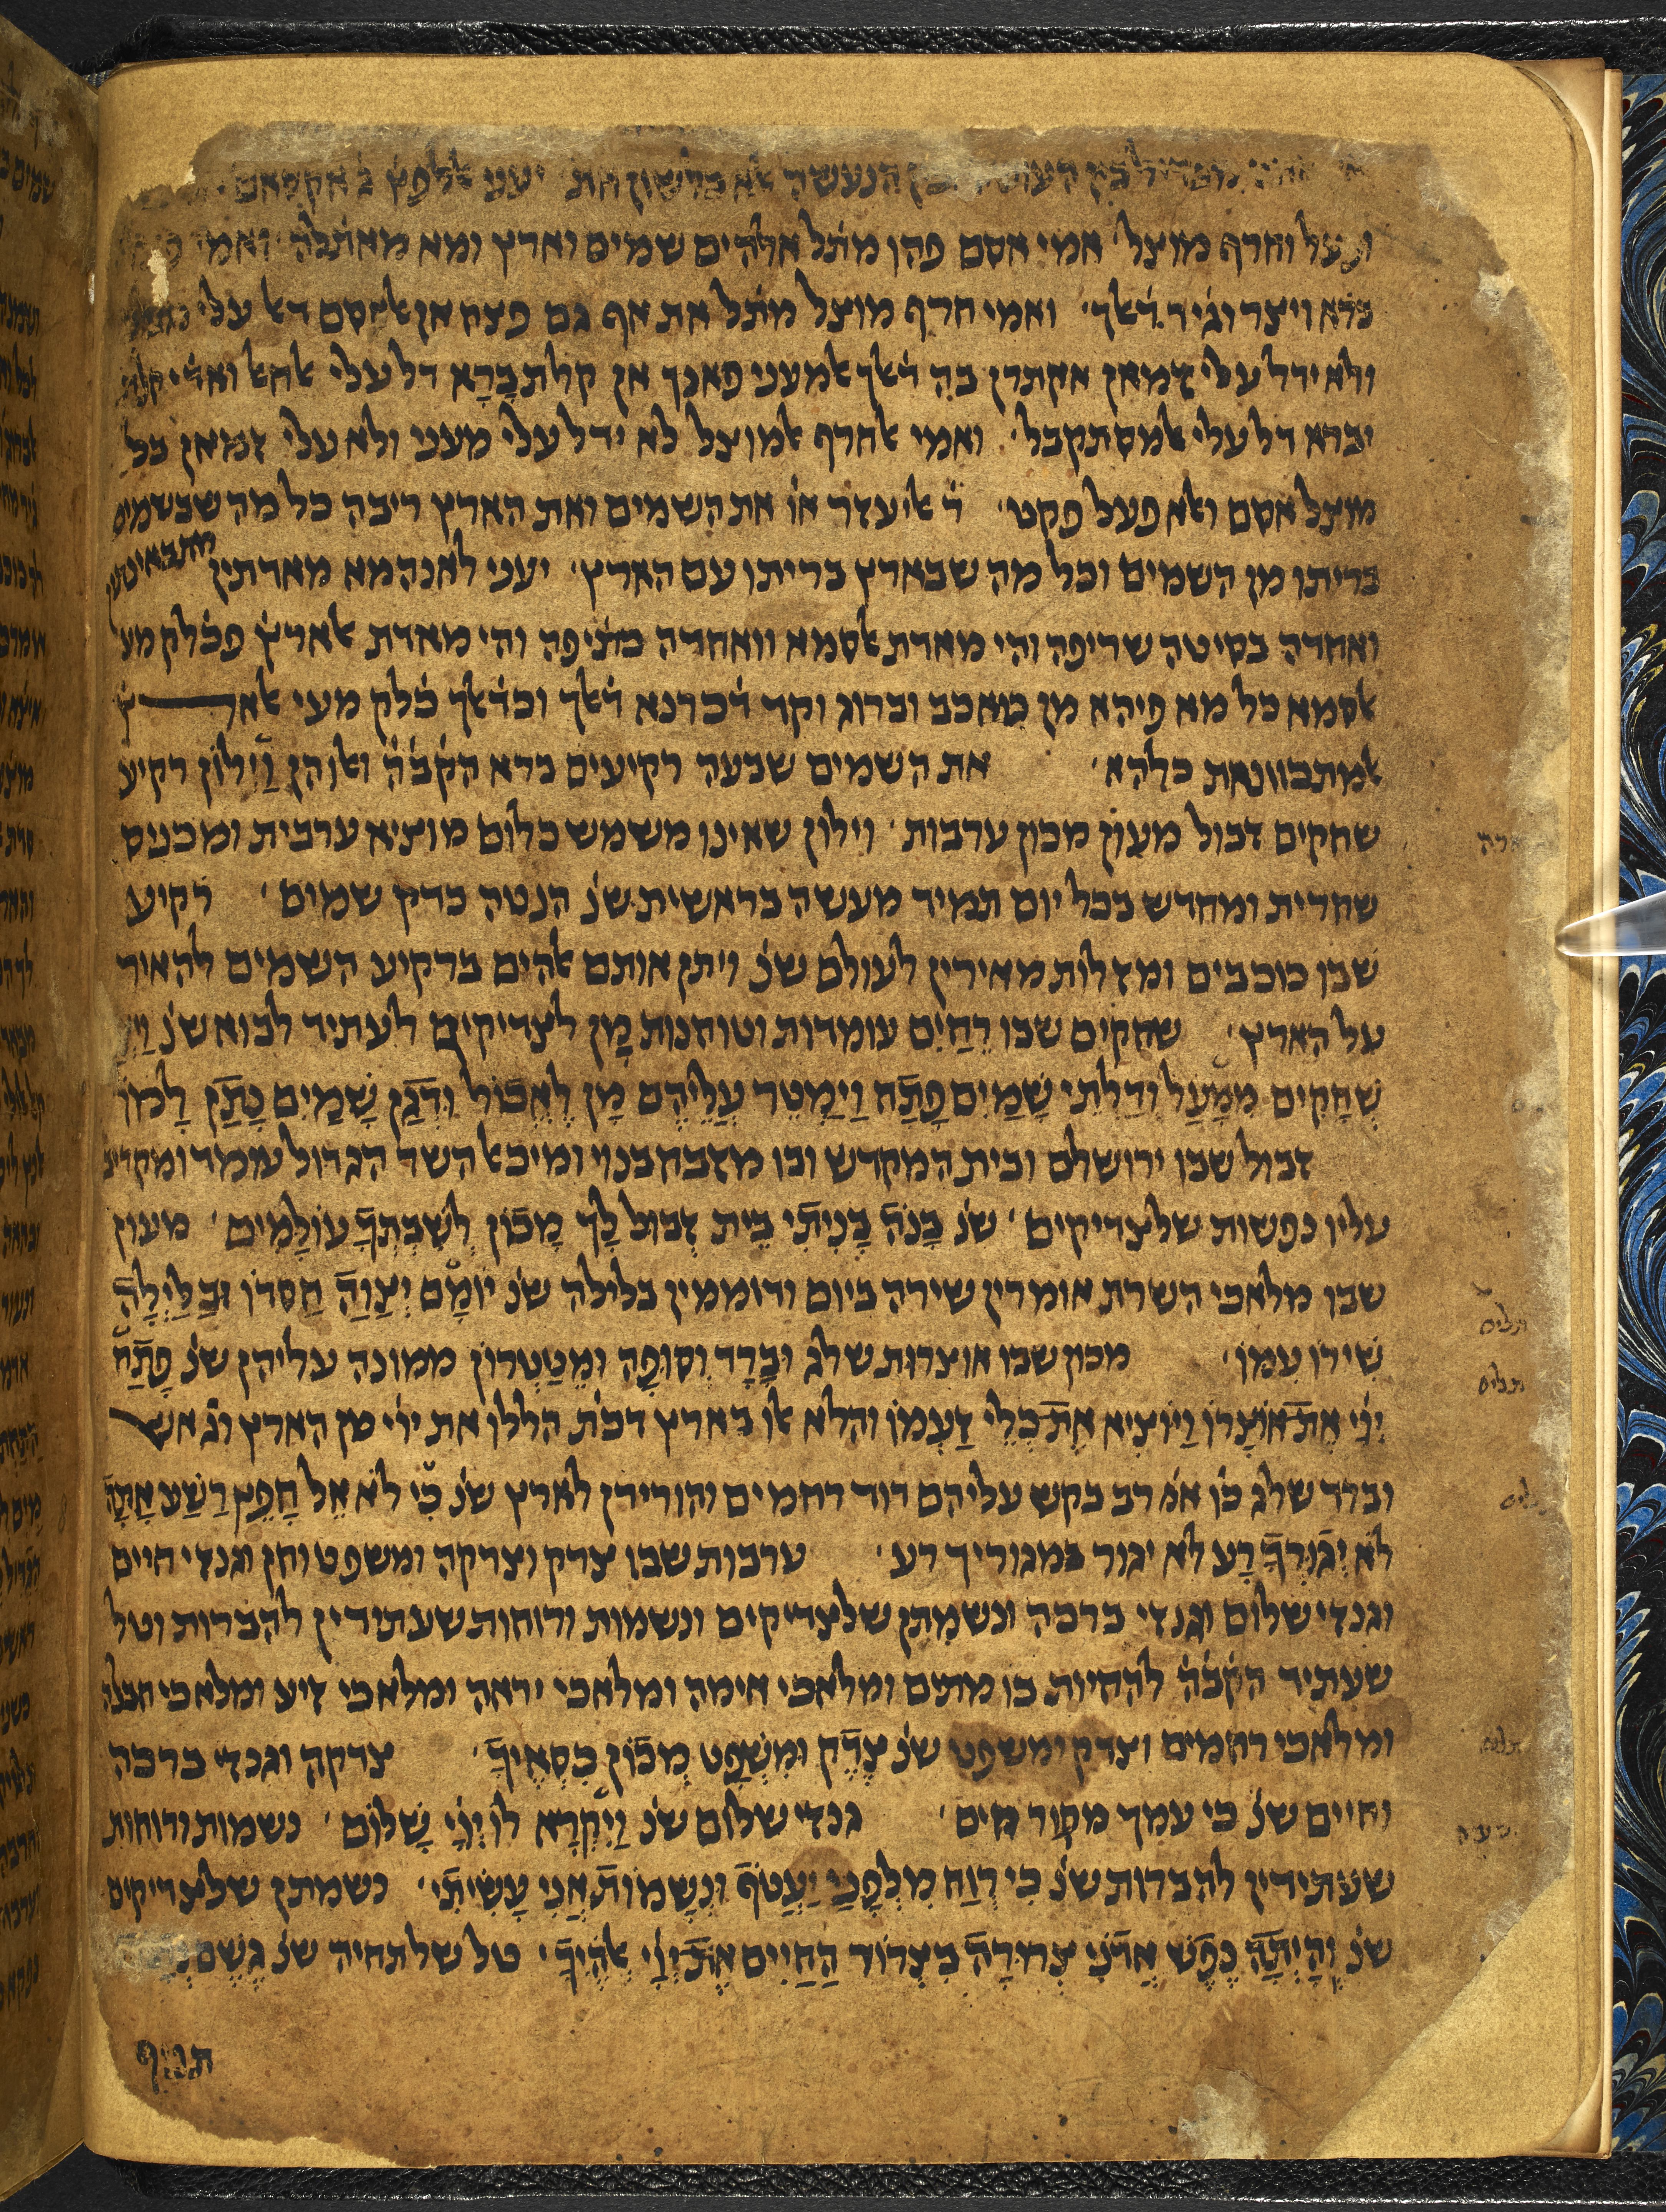 הנעשה לא ברשון חת יעני
ופעל וחרף מוצל אמי אסם פהן מתל אלהים שמים וארץ ומא מאתלה ואמי
ברא ויצר וגיר דׄאך ואמי חרף מוצל מתל את אף גם פצח אן אלאסם דל עלי
ולא ידל עלי זמאן אקתרן בה דׄאך אלמעני פאנך אן קלת בָרָא דל עלי
יברא דל עלי אלמסתקבל ואמי אלחרף אלמוצל לא ידל עלי מעני ולא עלי זמאן בל
מוצל אסם ולא פעל פקט ר אליעזר אוׄ את השמים ואת הארץ ריבה כל מה שבשמים
בריתו מן השמים וכל מה שבארץ בריתו עם הארץ יעני לאנהמא מאדתין מתבאינתין
ואחדה בסיטה שריפה והי מאדת אלסמא וואחדה כתׄיפה והי מאדת אלארץׄ פכׄלק מע
אלסמא כל מא פיהא מן כואכב וברוג וקד דׄכרנא דׄאלך וכדׄאלך כׄלק מעי אלארץׄ
אלמתכוונאת כלהא את השמים שבעה רקיעים ברא הקׄבׄהׄ ואלו הן וִילוֹן רקיע
שחקים זבול מעון מכון ערבות וילון שאינו משמש כלום מוציא ערבית ומכניס
שחרית ומחדש בכל יום תמיד מעשה בראשית שנׄ הנטה כדק שמים רקיע
שבו כוכבים ומזלות מאירין לעולם שנׄ ויתן אותם אלהים ברקיע השמים להאיר
על הארץ שחקים שבו רֵחַיִם עומדות וטוחנות מָן לצדיקים לעתיד לבוא שנׄ וַיְצַו
שְׁחָקִים מִמָּעַל וְדַלְתֵי שָׁמַיִם פָּתָח וַיַמְטֵר עֲלֵיהֶם מָן לֶאֱכוֹל וּדְגַן שָׁמַיִם נָתַן לָמוֹ
זבול שבו ירושלם ובית המקדש ובו מזבח בנוי ומיכאל השר הגדול עומד ומקריב
עליו נפשות שלצדיקים שנׄ בָּנֹה בָנִיתִי בֵּית זְבוּל לָךְ מָכוֹן לְשִׁבְתְּךָ עוֹלָמִים מעון
שבו מלאכי השרת אומרין שירה ביום ודוממין בלילה שנׄ יוֹמָם יְצַוֶּה חַסדוֹ וּבַלַּיְלָה
שִׁירוֹ עִמּוֹ מכון שבו אוצרות שלג וּבָרָד וְסוּפָה וּמֵטַטְרוֹן ממונה עליהן שנׄ פָּתַח
יְיָׄ אֶת אוֹצָרוֹ וַיּוֹצִיא אֶת כְּלֵי זַעְמוֹ והלא אלו בארץ דכתׄ הללו את יוׄיׄ מן הארץ וגוׄ אש
וברד שלג כוׄ אׄמׄ רב בקש עליהם דוד רחמים והורידן לארץ שנׄ כִּי לֹא אֵל חָפֵץ רַשַׁע אַתָּה
לֹא יְגוּרְךָ רָע לא יגור במגוריך רע ערבות שבו צדק וצדקה ומשפט וחן וגנזי חיים
וגנזי שלום וגנזי ברכה ונשמתן שלצדיקים ונשמות ורוחות שעתידין להבראות וטל
שעתיד הקׄבׄהׄ להחיות בו מתים ומלאכי אימה ומלאכי יראה ומלאכי זיע ומלאכי חבלה
ומלאכי רחמים וצדק ומשפט שנׄ צֶדֶק וּמִשְׁפָּט מְכוֹן כִּסְאֶיךָ צדקה וגנזי ברכה
וחיים שנׄ כי עמך מקור חיים גנזי שלום שנׄ וַיִּקְרָא לוֹ יְיָׄ שָׁלוֹם נשמות ורוחות
שעתידין להבדות שנׄ כִּי רוּחַ מִלְּפָנַי יַעֲטֹף וּנְשָׁמוֹת אֲנִי עָשִׂיתִי נשמתן שלצדיקים
שנׄ וְהָיְתָה נֶפֶשׁ אֲדֹנִי צְרוּרָה בִּצְרוֹר הַחַיִּים אֶת יְיָׄ אֱלֹהֶיךָ טל שלתחיה שנׄ גֶּשֶׁם
תניף